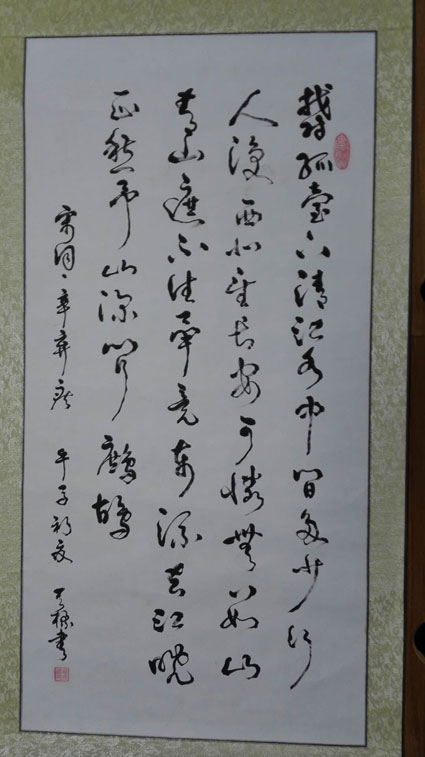 鬱孤臺下清江水中間多少行
人淚西北望長安可憐無數山
青山遮不住畢竟東流去江晚
正愁余山深聞鷓鴣
宋词辛弃疾 子初夏 書